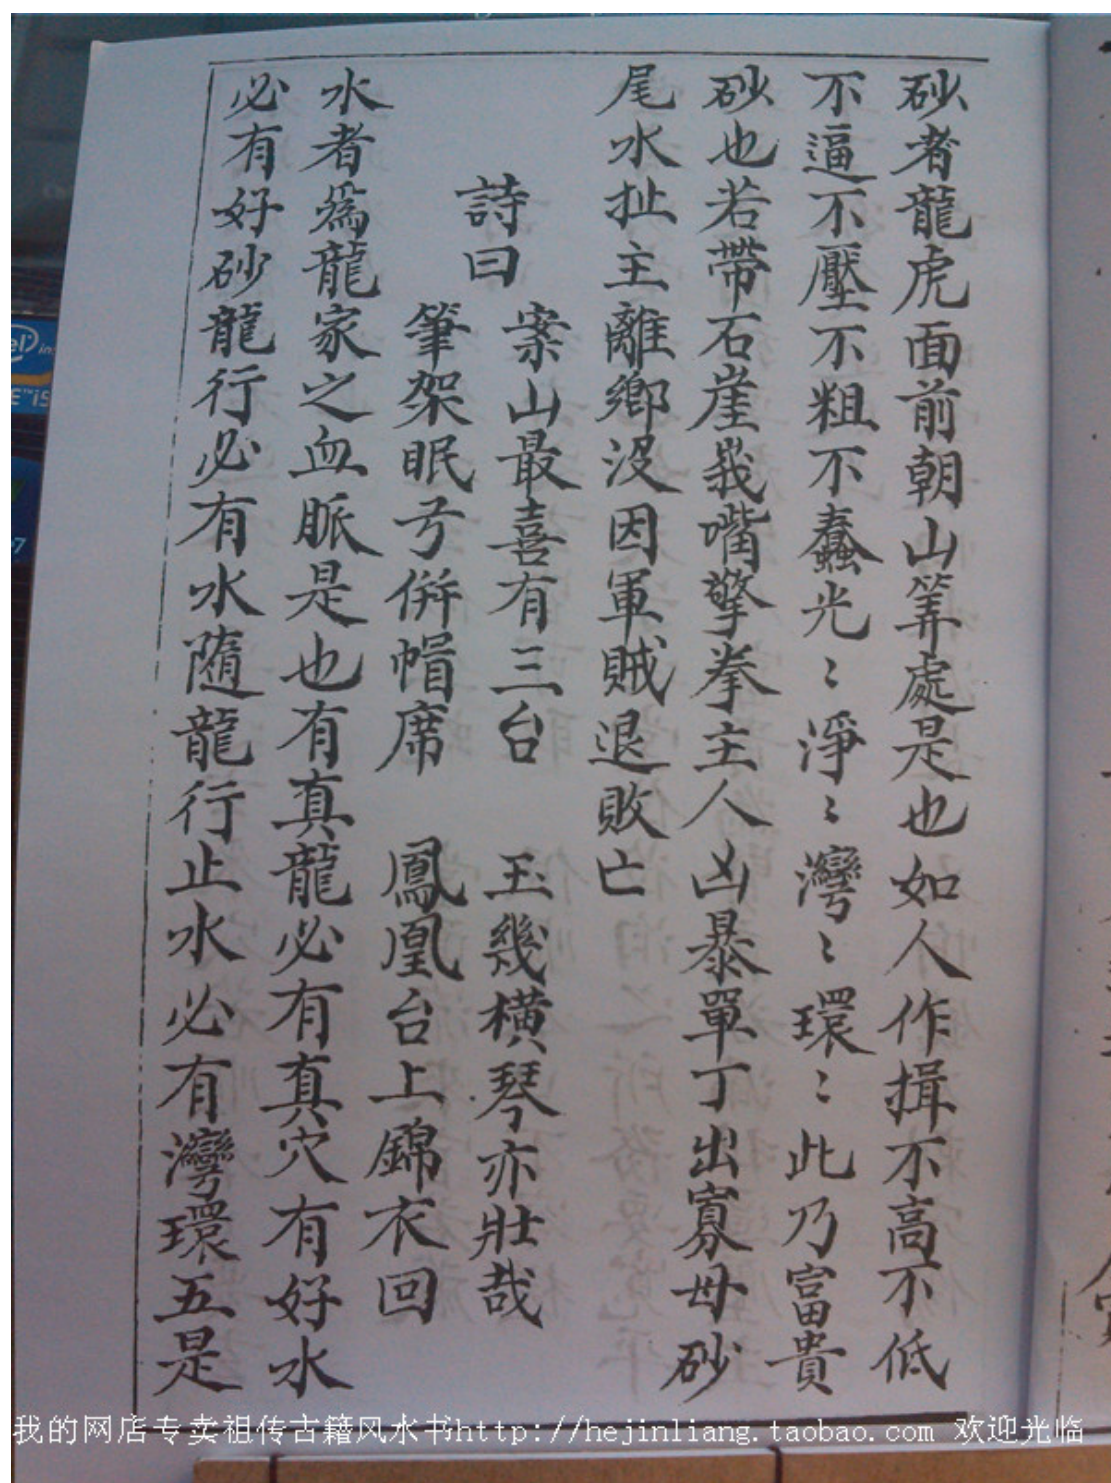 砂者龍虎面前朝山等處是也如人作揖不高不低
不逼不壓不粗不蠢光〻淨〻灣〻環〻此乃富貴
砂也若帶石崖峩嘴擎拳主人凶暴單丁出寡母砂
尾水扯主離鄉沒因軍賊退敗亡
詩曰
案山最喜有三台 玉幾橫琴亦壯哉
筆架眠弓併帽席 鳳凰台上錦衣回
水者爲龍家之血脈是也有真龍必有真穴有好水
必有好砂龍行必有水隨龍行止水必有灣環五是
我的网店专卖祖传古籍风水书http://hejinliang.taobao.com 欢迎光临